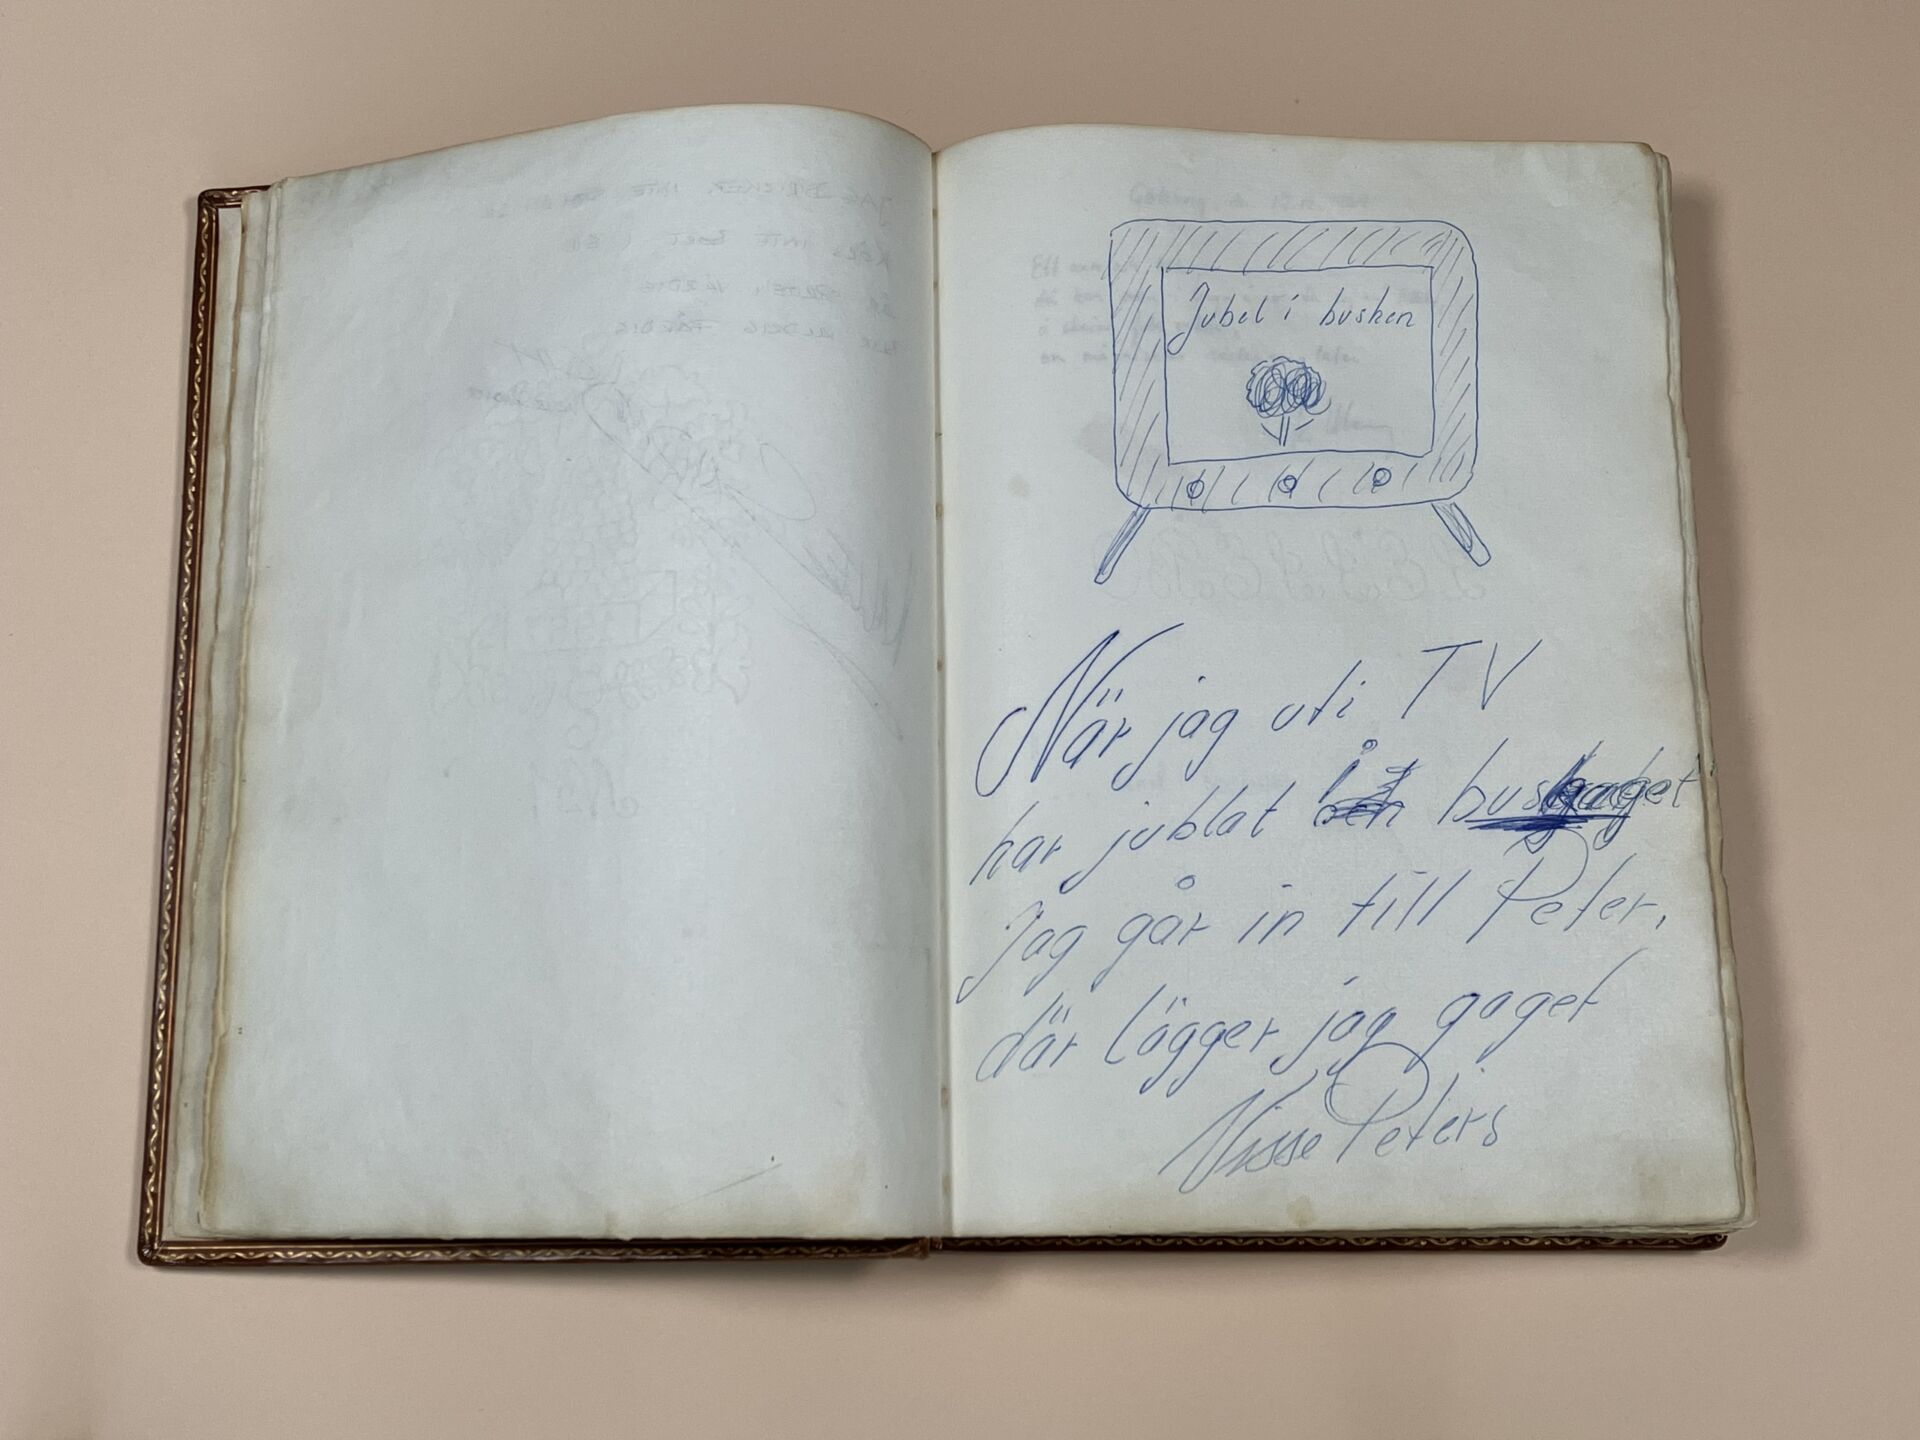 Jubel i busken
När jag uti TV
har jublat i
Jag går in till Peter,
där lägger jag gaget
Nisse Peters